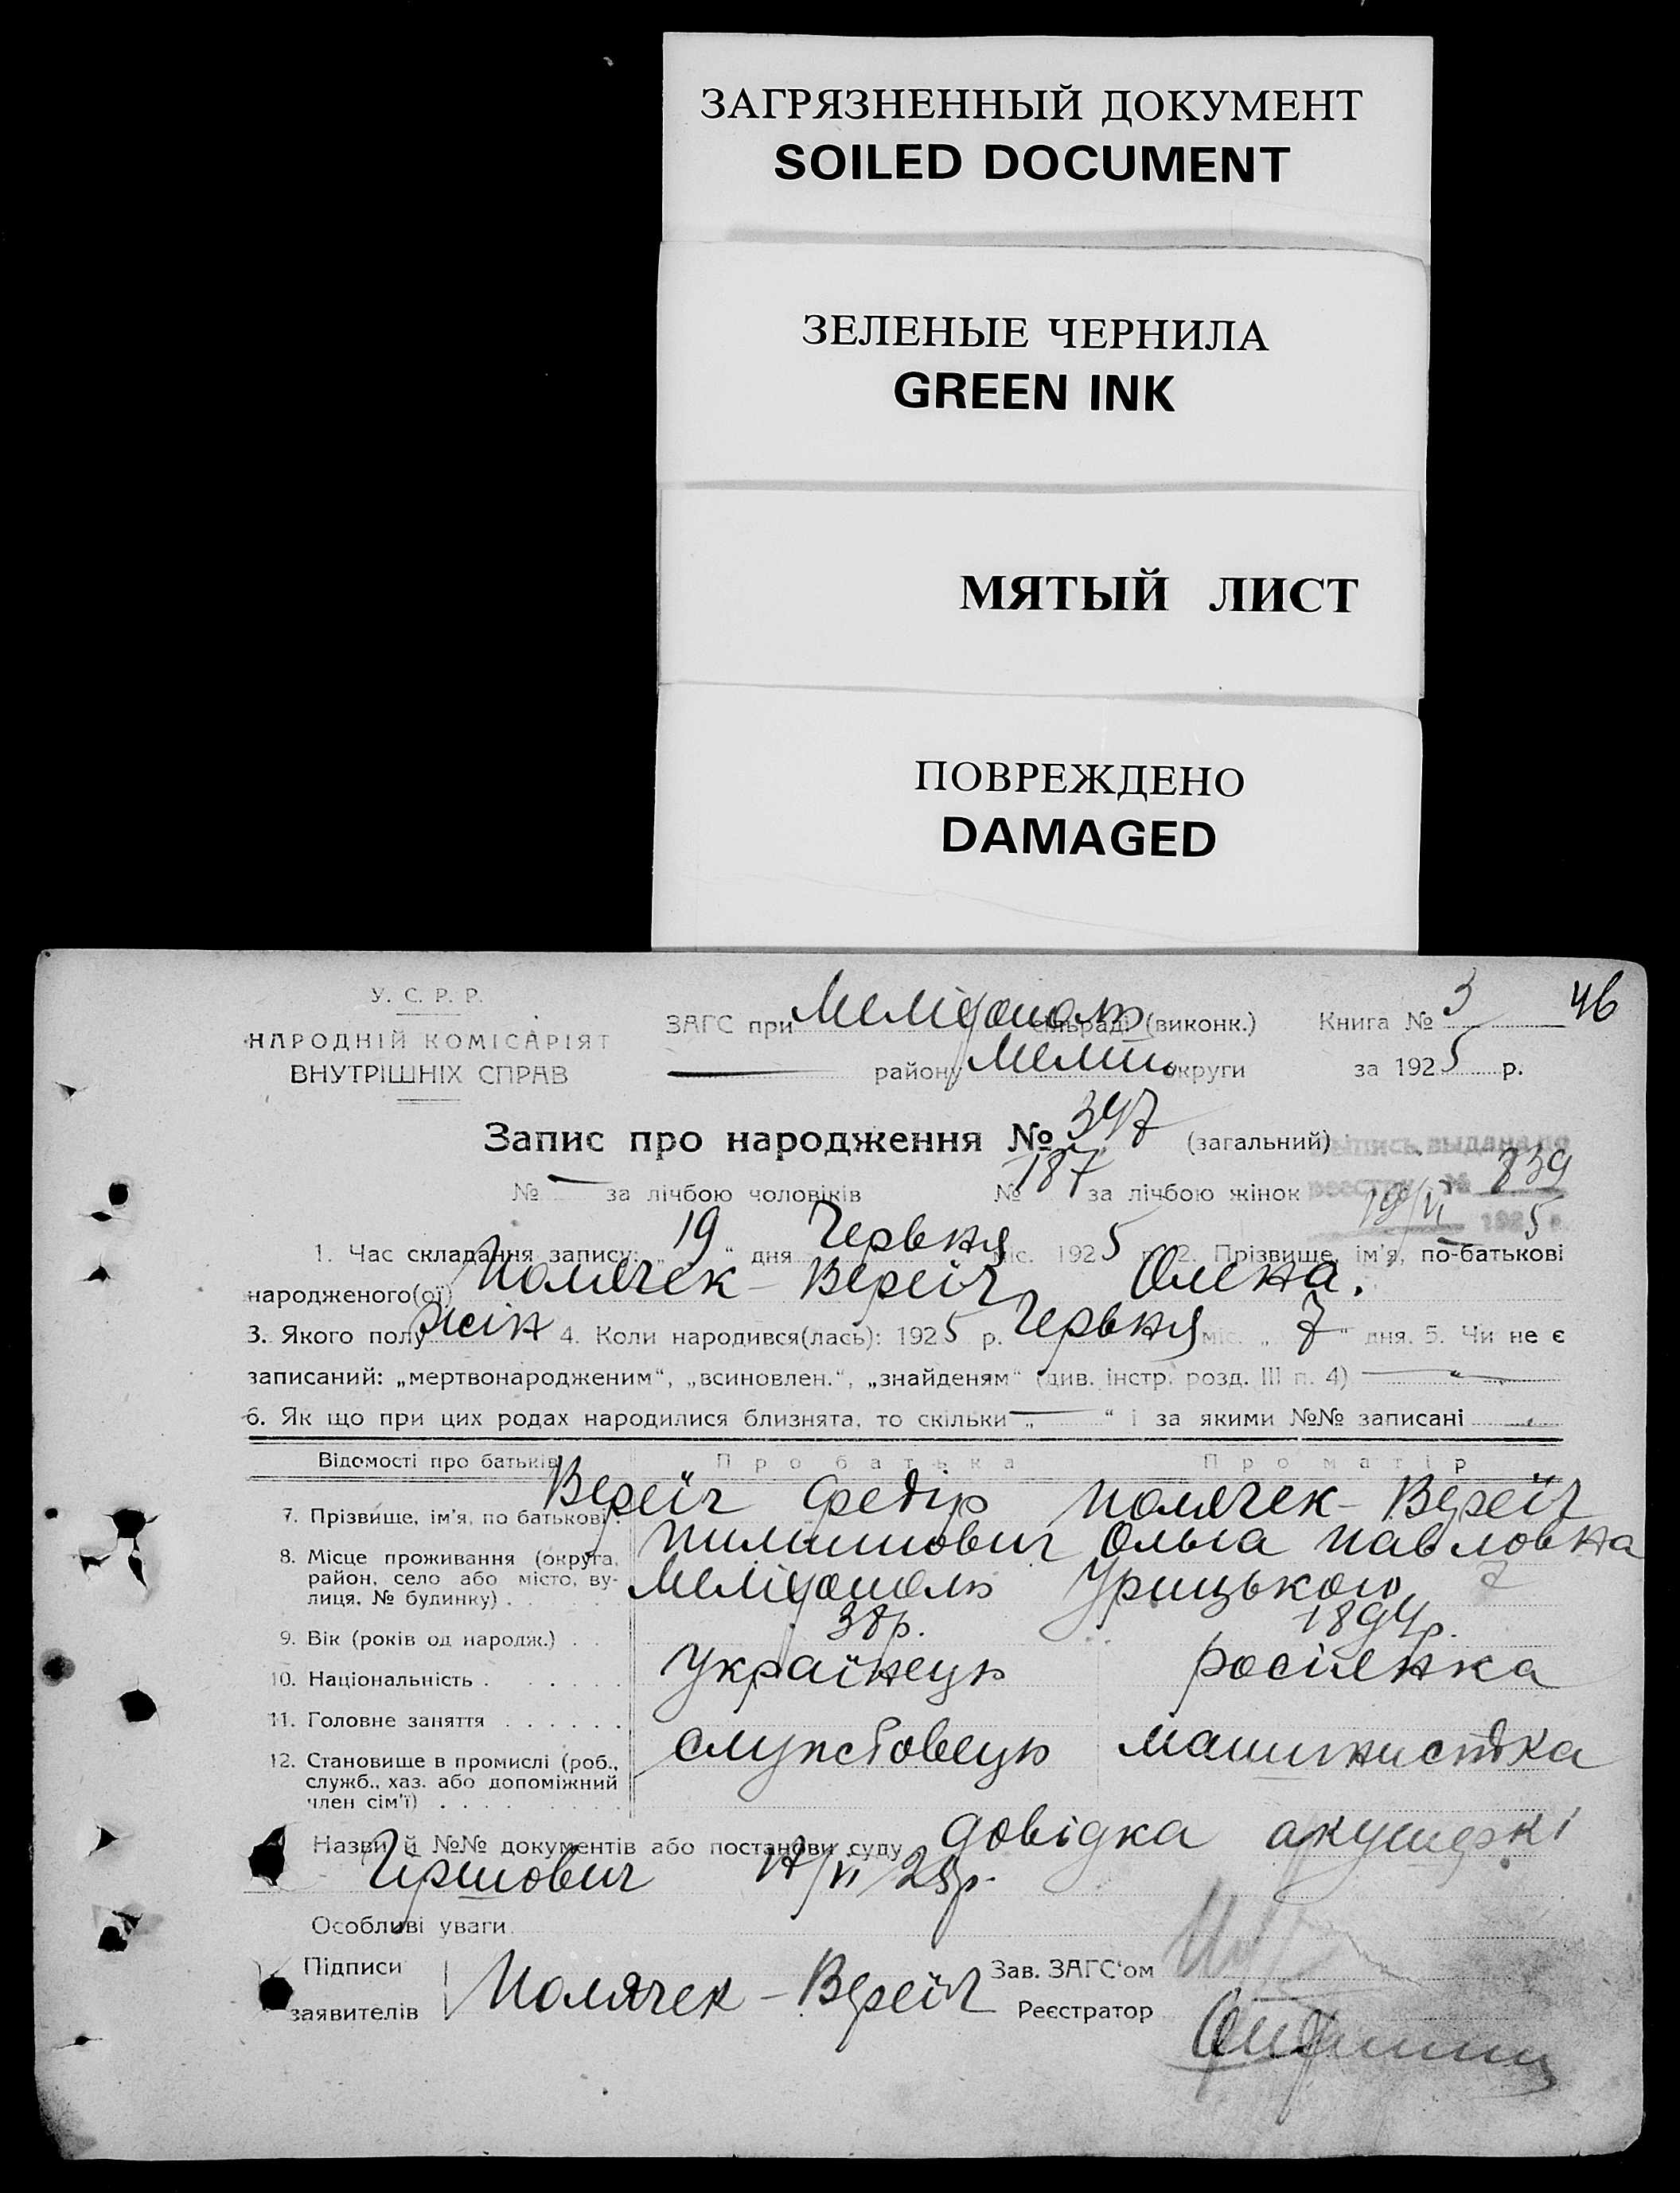 ЗАГРЯЗНЕННЫЙ ДОКУМЕНТ
SOILED DOCUMENT
ЗЕЛЕНЫЕ ЧЕРНИЛА
GREEN INK
МЯТЫЙ ЛИСТ
ПОВРЕЖДЕНО
DAMAGED
У. С. Р. Р.
НАРОДНІЙ КОМІСАРІЯТ
ВНУТРІШНІХ СПРАВ
ЗАГС при Меліуополь сільраді (виконк.)
району Меліт. округи
Книга № 3 46
за 1925 р.
Запис про народження № 347 (загальний)
выпись выдана по
№ — за лічбою чоловіків № 187 за лічбою жінок
реестру № 839
19/VI 1925 г.
1. Час складання запису: „19“ дня Червня міс. 1925 р. 2. Прізвище, ім'я, по-батькові
народженого(ої) Полячек-Вереіч Олена.
3. Якого полу жін 4. Коли народився(лась): 1925 р. Червня міс. „7“ дня. 5. Чи не є
записаний: „мертвонародженим“, „всиновлен.“, „знайденям“ (див. інстр. розд. III п. 4) — „
6. Як що при цих родах народилися близнята, то скільки „—“ і за якими №№ записані
Відомості про батьків Про батька Про матір
7. Прізвище, ім'я, по батькові. Вереїч Федір Полячек-Вереїч
Пилипович Ольга Павловна
8. Місце проживання (округа,
район, село або місто, ву-
лиця, № будинку) . Меліуополь Урицького 7
9. Вік (років од народж.) . . 38р. 1894р.
10. Національність . . . . . . Українець росіянка
11. Головне заняття . . . . . .
12. Становище в промислі (роб.,
служб., хаз. або допоміжний
член сім'ї) . . . . . . . . службовець машиністка
Назви й №№ документів або постанови суду довідка акушеркі
Гіршович 17/VI 25р.
Особливі уваги
Підписи
заявителів Полячек-Вереїч
Зав. ЗАГС'ом
Реєстратор